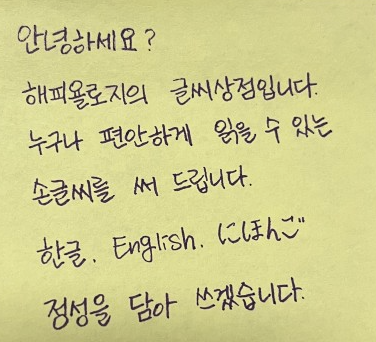 안녕하세요?
해피욜로지의 글씨상점입니다.
누구나 편안하게 읽을 수 있는
손글씨를 써 드립니다.
한글. English. にほんご
정성을 담아 쓰겠습니다.